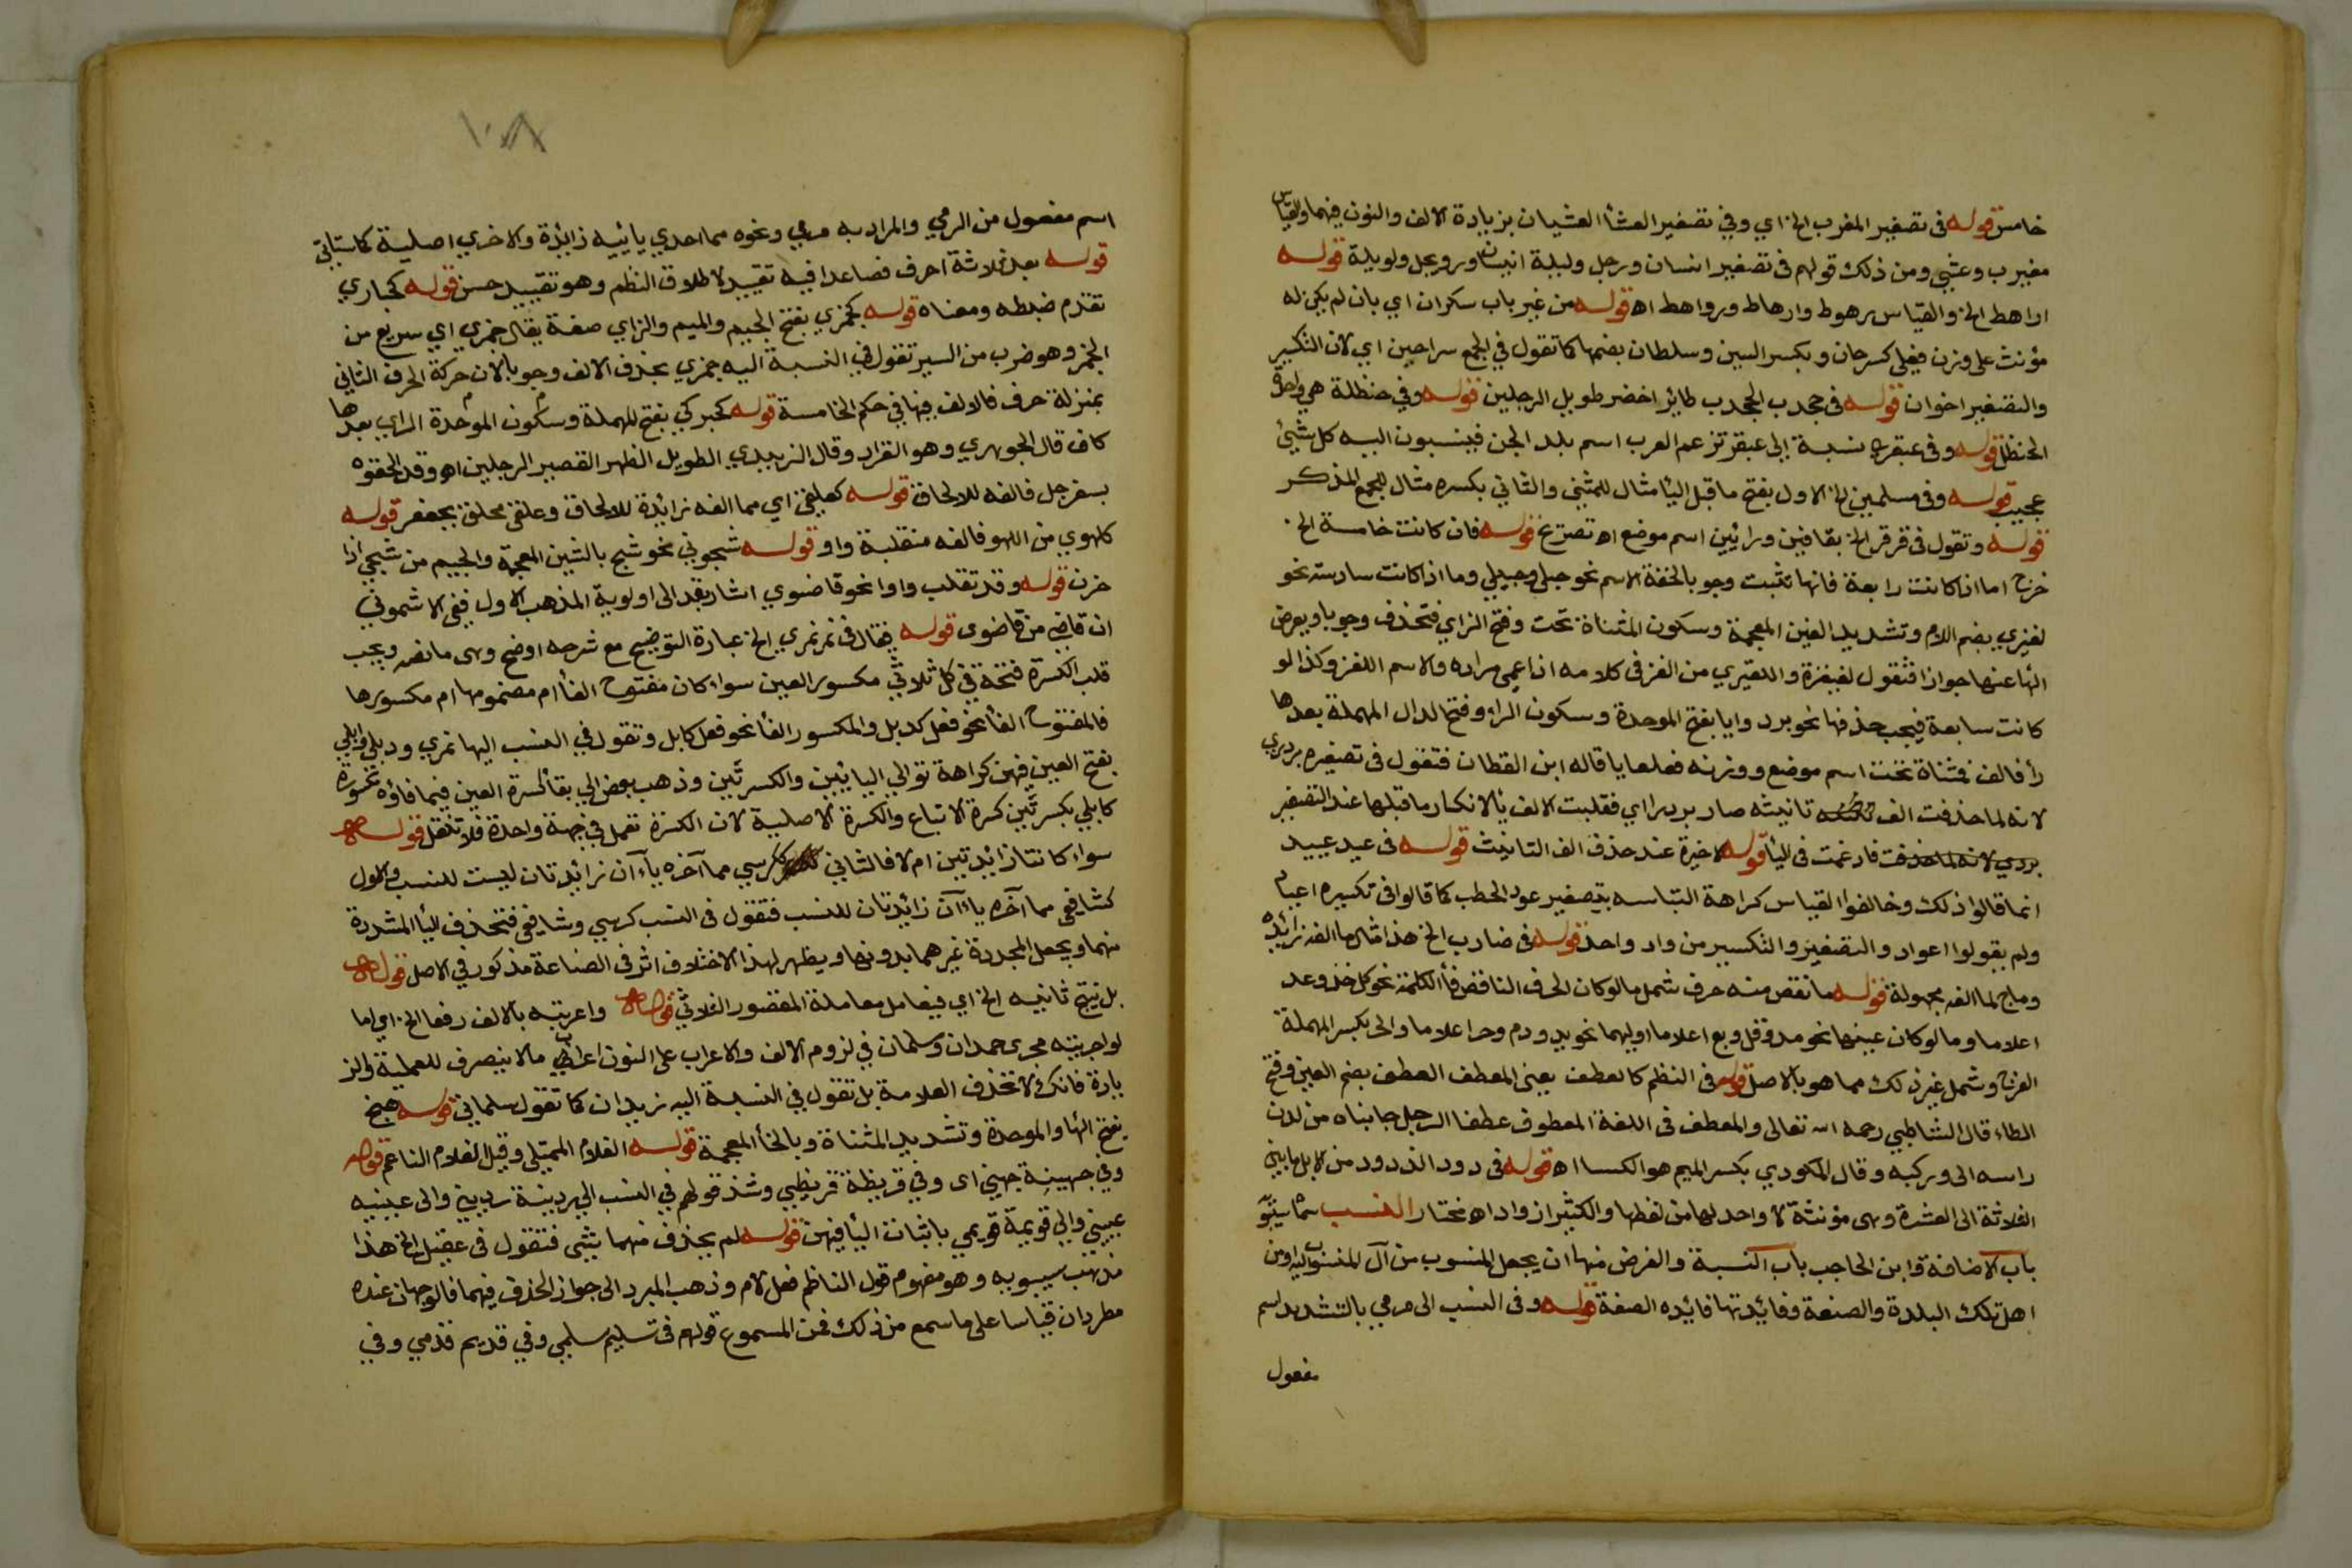 خامس قوله في تصغير المغرب الخ اي وفي تصغير العشأ العشيان بزيادة الالف والنون فيهما والقياس
مغيرب وعشي ومن ذلك قولهم في تصغير انسان ورجل وليلة انيسان ورويجل ولويلة قوله
اراهط الخ والقياس رهوط وارهاط ورواهط اه قوله من غير باب سكران اي بان لم يكن له
مؤنث على وزن فعلى كسرحان وبكسر السين وسلطان بضمها كما تقول في الجمع سراحين اي لان التكبير
والتصغير اخوان قوله في جحدب الجحدب طائر اخضر طويل الرجلين قوله وفي حنظلة هي واحدة
الحنظل قوله وفي عبقري نسبة الى عبقر تزعم العرب اسم بلد الجن فينسبون اليه كل شيئ
عجيب قوله وفي مسلمين الخ الاول بفتح ما قبل اليأ مثال للمثنى والثاني بكسره مثال للجمع المذكر
قوله وتقول في قرقر الخ بقافين ورائين اسم موضع اه تصريح قوله فان كانت خامسة الخ
خرج اما اذا كانت رابعة فانها تثبت وجوبا لخفة الاسم نحو حبلى وحبيلى وما اذا كانت سادسة نحو
لغيزي بضم اللام وتشديد الغين المعجمة وسكون المثناة تحت وفتح الزاي فتحذف وجوبا ويعوض
الها عنها جوازا فتقول لغيغزة واللغيزي من الغز في كلامه اذا عمي مراده والاسم اللغز وكذا لو
كانت سابعة فيجب حذفها نحو بردرايا بفتح الموحدة وسكون الراء وفتح الدال المهملة بعدها
رأ فالف فمثناة تحت اسم موضع ووزنه فعلعايا قاله ابن القطان فتقول في تصغيره بريدري
لانه لما حذفت الف تانيثه صار بردراي فقلبت الالف يألانكسار ما قبلها عند التصغير
فادغمت في اليأ الاخيرة عند حذف الف التانيث قوله في عيد عييد
انما قالوا ذلك وخالفوا القياس كراهة التباسه بتصغير عود الحطب كما قالوا في تكسيره اعياد
ولم يقولوا اعواد والتصغير والتكسير من واد واحد قوله في ضارب الخ هذا مثال ما الفه زائدة
وماج لما الفه مجهولة قوله ما نقص منه حرف شمل ما لو كان الحرف الناقص فأ الكلمة نحو كل خذ وعد
اعلاما وما لو كان عينها نحو مد وقل وبع اعلاما اولامها نحو يد ودم وحر اعلاما والحر بكسر المهملة
الفرج وشمل غير ذلك مما هو بالاصل قوله في النظم كالعطف يعني المعطف العطف بضم العين وفتح
الطاء قال الشاطبي رحمه الله تعالى والمعطف في اللغة المعطوف عطفا الرجل جانباه من لدن
راسه الى وركيه وقال المكودي بكسر الميم هو الكسا اه قوله في ذود الذود من الابل ما بين
الثلاثة الى العشرة وهي مؤنثة لا واحد لها من لفظها والكثير اذواد اه مختار النسب سماه سيبويه
باب الاضافة وابن الحاجب باب النسبة والغرض منها ان يجعل المنسوب من آل المنسوب اليه او من
اهل تلك البلدة والصنعة وفائدتها فائده الصفة قوله وفي النسب الى مرمي بالتشديد اسم
مفعول
١٠٨
اسم مفعول من الرمي والمراد به مرمي ونحوه مما احدي يائيه زائدة والاخري اصلية كما ستاتي
قوله بعد ثلاثة احرف فصاعدا فيه تقييد لاطلاق النظم وهو تقييد حسن قوله كحباري
تقدم ضبطه ومعناه قوله كجمزي بفتح الجيم والميم والزاي صفة يقال جمزي اي سريع من
الجمز وهو ضرب من السير تقول في النسبة اليه جمزي بحذف الالف وجوبا لان حركة الحرف الثاني
بمنزلة حرف فالالف فيها في حكم الخامسة قوله كحبركي بفتح المهملة وسكون الموحدة الراي بعدها
كاف قال الجوهري وهو القراد وقال الزبيدي الطويل الظهر القصير الرجلين اه وقد الحقوه
بسفرجل فالفه للالحاق قوله كعلقى اي مما الفه زائدة للالحاق وعلقى محلق بجعفر قوله
كلهوي من اللهو فالفه منقلبة واو قوله شجوي نحو شج بالشين المعجمة والجيم من شجي اذا
حزن قوله وقد تقلب واوا نحو قاضوي اشار بقد الى اولوية المذهب الاول ففي الاشموني
ان قاضي من قاضوي قوله فقال في نمر نمري الخ عبارة التوضيح مع شرحه اوضح وهي ما نصه ويجب
قلب الكسرة فتحة في كل ثلاثي مكسور العين سواء كان مفتوح الفأ ام مضمومها ام مكسورها
فالمفتوح الفأ نحو فعل كدبل والمكسور الفأ نحو فعل كابل وتقول في النسب اليها نمري ودبلي وابلي
بفتح العين فيهن كراهة توالي اليايين والكسرتين وذهب بعض الى بقأ كسرة العين فيما فاؤه مكسورة
كابلي بكسرتين كسرة الاتباع والكسرة الاصلية لان الكسرة تعمل في جهة واحدة فلا تثقل قوله
سواء كانتا زايدتين ام لا فالثاني ككرسي مما آخره ياآن زائدتان ليست للنسب والاول
كشافعي مما آخره ياآن زائدتان للنسب فتقول في النسب كرسي وشافعي فتحذف اليأ المشددة
منهما ويجعل المجددة غيرهما بدونها ويظهر لهذا الاختلاف اثر في الصناعة مذكور في الاصل قوله
بل يفتح ثانيه الخ اي فيعامل معاملة المقصور الثلاثي قوله واعربته بالالف رفعا الخ اي اما
لو اجريته مجرى حمدان وسلمان في لزوم الالف والاعراب على النون اعراب ما لا ينصرف للعلمية والز
يادة فانك لا تحذف العلامة بل تقول في النسبة اليه زيدان كما تقول سلماني قوله هبيخ
بفتح الها والموحدة وتشديد المثناة وبالخأ المعجمة قوله الغلام الممتلي وقيل الغلام الناعم قوله
وفي جهينة جهني اى وفي قريظة قريظي وشذ قولهم في النسب الى ردينة رديني والى عيينه
عييني والى قويمة قويمي باثبات اليأ فيهن قوله لم يحذف منهما شئ فتقول في عقيل الخ هذا
مذهب سيبويه وهو مفهوم قول الناظم فعل لام وذهب المبرد الى جواز الحذف فيهما فالوجهان عنده
مطردان قياسا على ما سمع من ذلك فمن المسموع قولهم في تسليم سلمي وفي قديم قدمي وفي